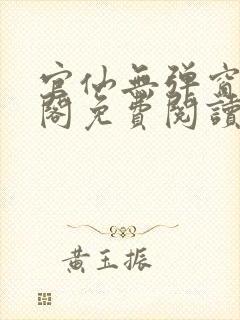 官仙無弹窗
閣免費閱讀
黃玉振